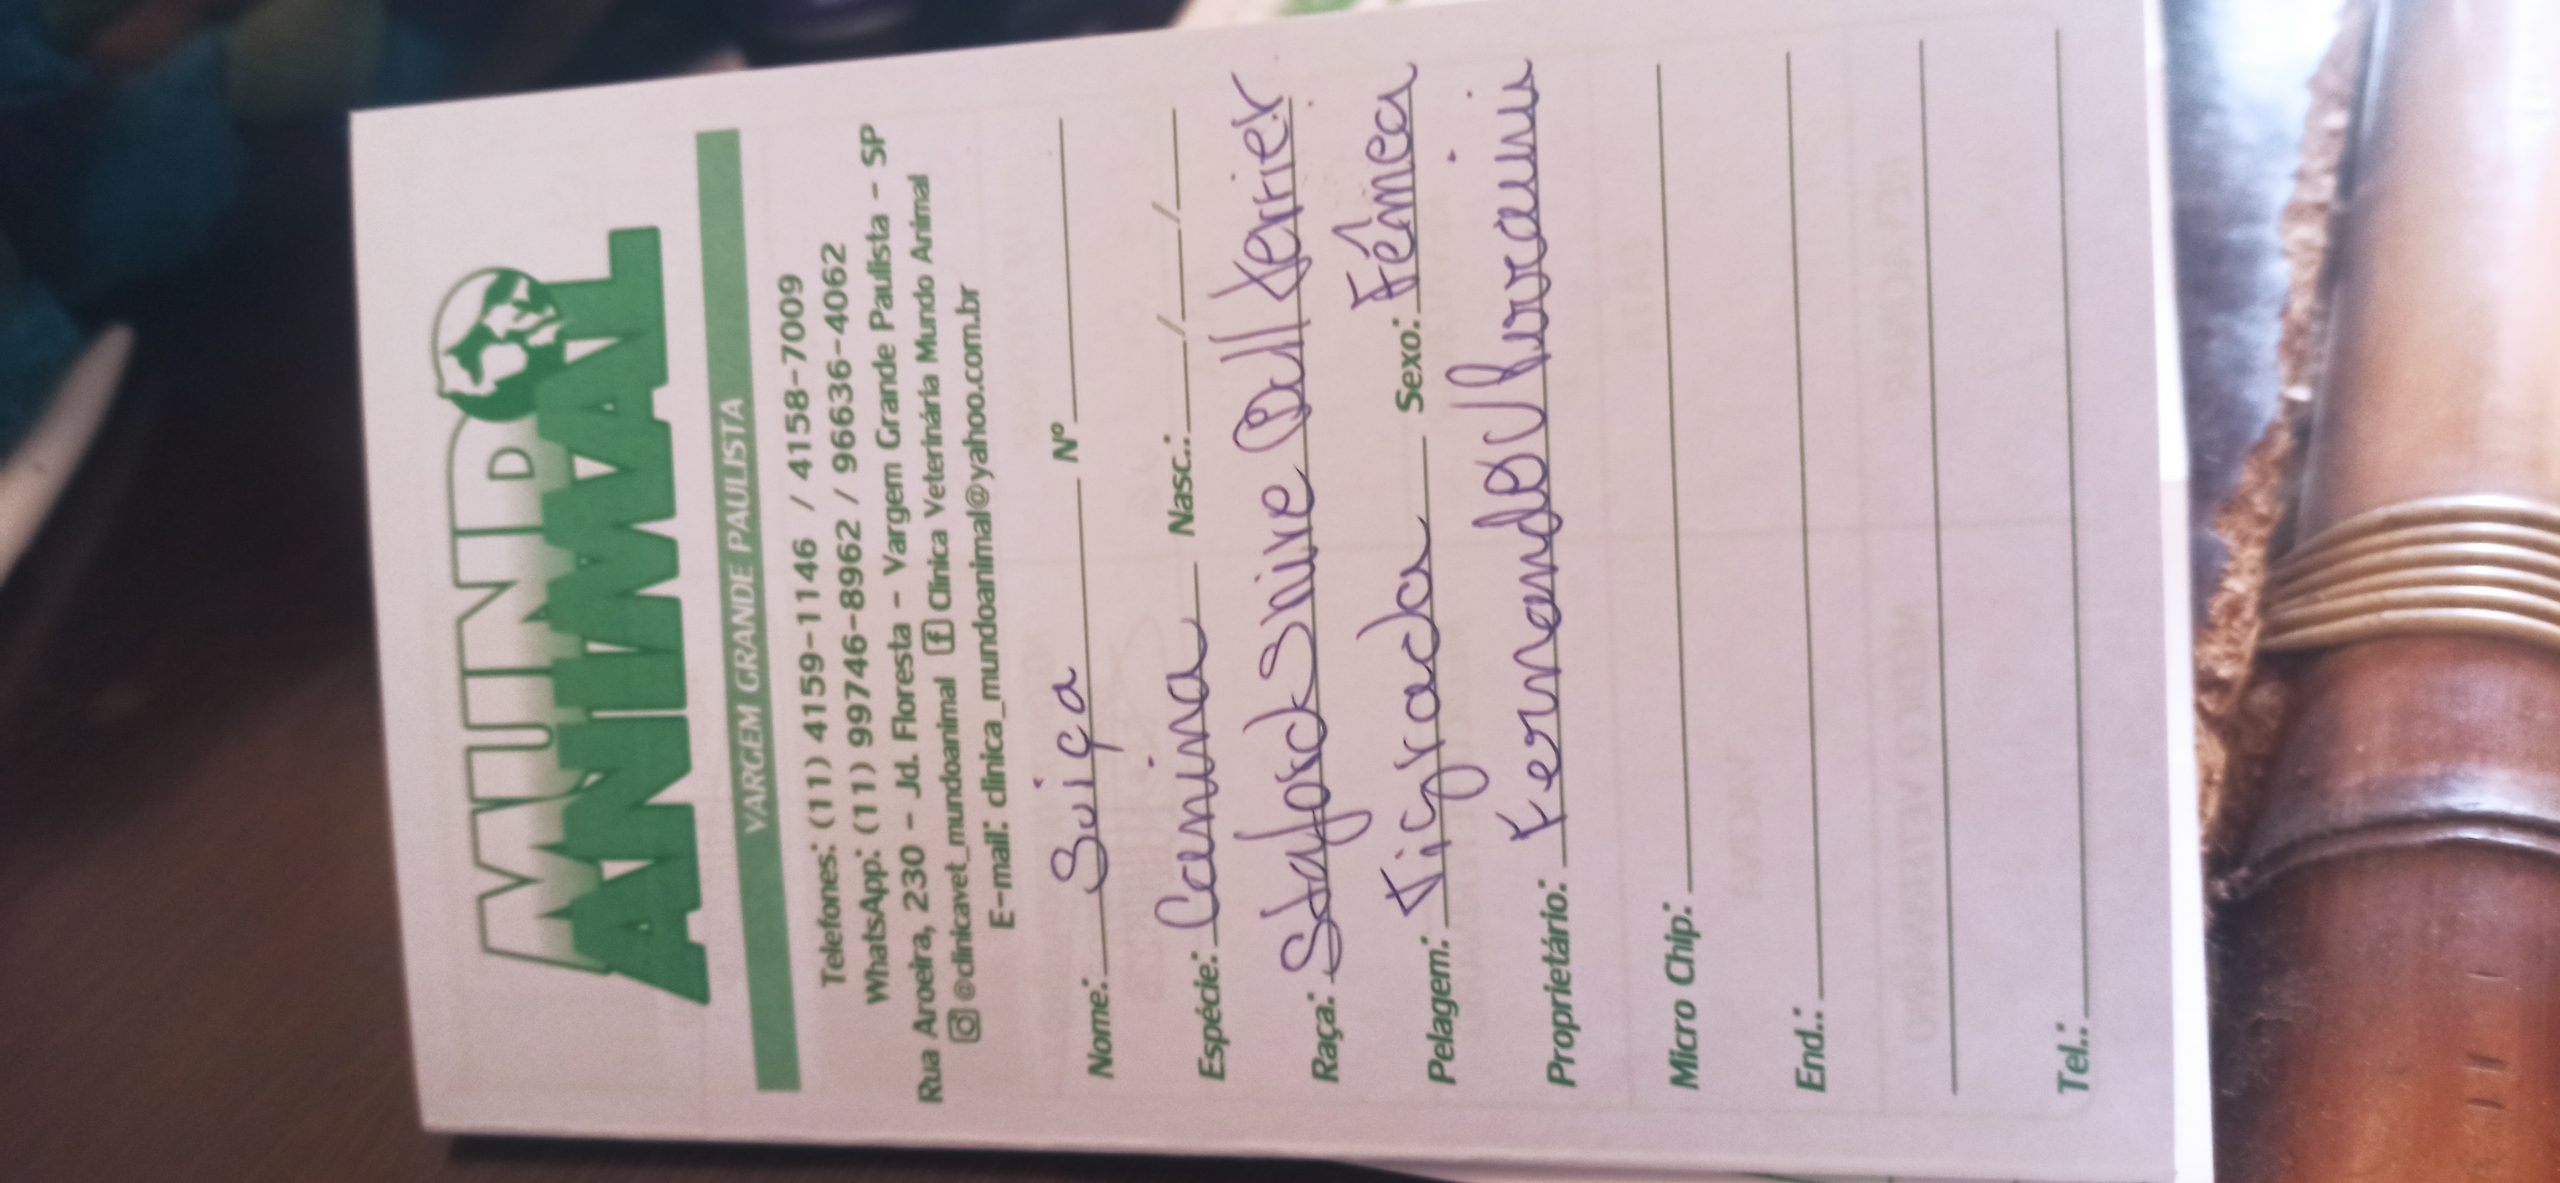 MUNDO
ANIMAL
VARGEM GRANDE PAULISTA
Telefones: (11) 4159-1146 / 4158-7009
WhatsApp: (11) 99746-8962 / 96636-4062
Rua Aroeira, 230 - Jd. Floresta - Vargem Grande Paulista - SP
@clinicavet_mundoanimal Clínica Veterinária Mundo Animal
E-mail: clinica_mundoanimal@yahoo.com.br
Nome: Suiça Nº
Espécie: Canina Nasc.: / /
Raça: Staford Shire Bull terrier
Pelagem: Tigrada Sexo: Fêmea
Proprietário: Fernando
Micro Chip:
End.:
Tel.: